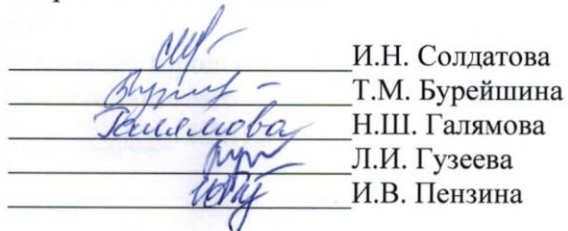 И.Н. Солдатова
Т.М. Бурейшина
Галямова Н.Ш. Галямова
Л.И. Гузеева
И.В. Пензина